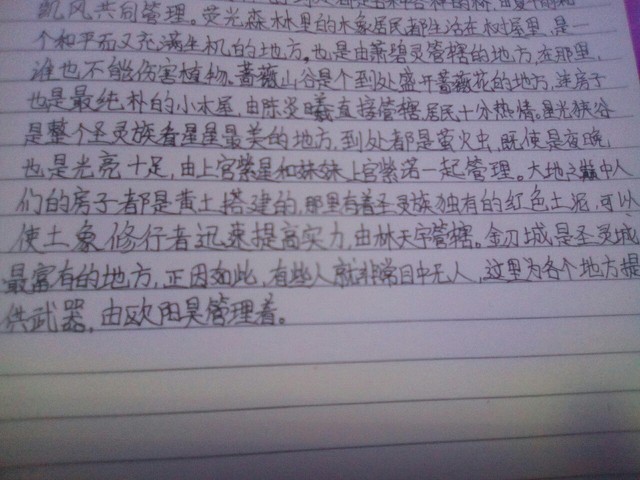 凯风共同管理。荧光森林里的木象居民都生活在树屋里,是一
个和平而又充满生机的地方。也是由萧碧灵管辖的地方,在那里,
谁也不能伤害植物。蔷薇山谷是个到处盛开蔷薇花的地方,连房子
也是最纯朴的小木屋,由陈炎曦直接管辖,居民十分热情。星光狭谷
是整个圣灵族看星星最美的地方,到处都是萤火虫,既使是夜晚
也是光亮十足,由上官紫星和妹妹上官紫诺一起管理。大地之巅中人
们的房子都是黄土搭建的,那里有着圣灵族独有的红色土泥,可以
使土象修行者迅速提高实力,由林天宇管辖。金刃城是圣灵城
最富有的地方,正因如此,有些人就非常目中无人,这里为各个地方提
供武器,由欧阳昊管理着。